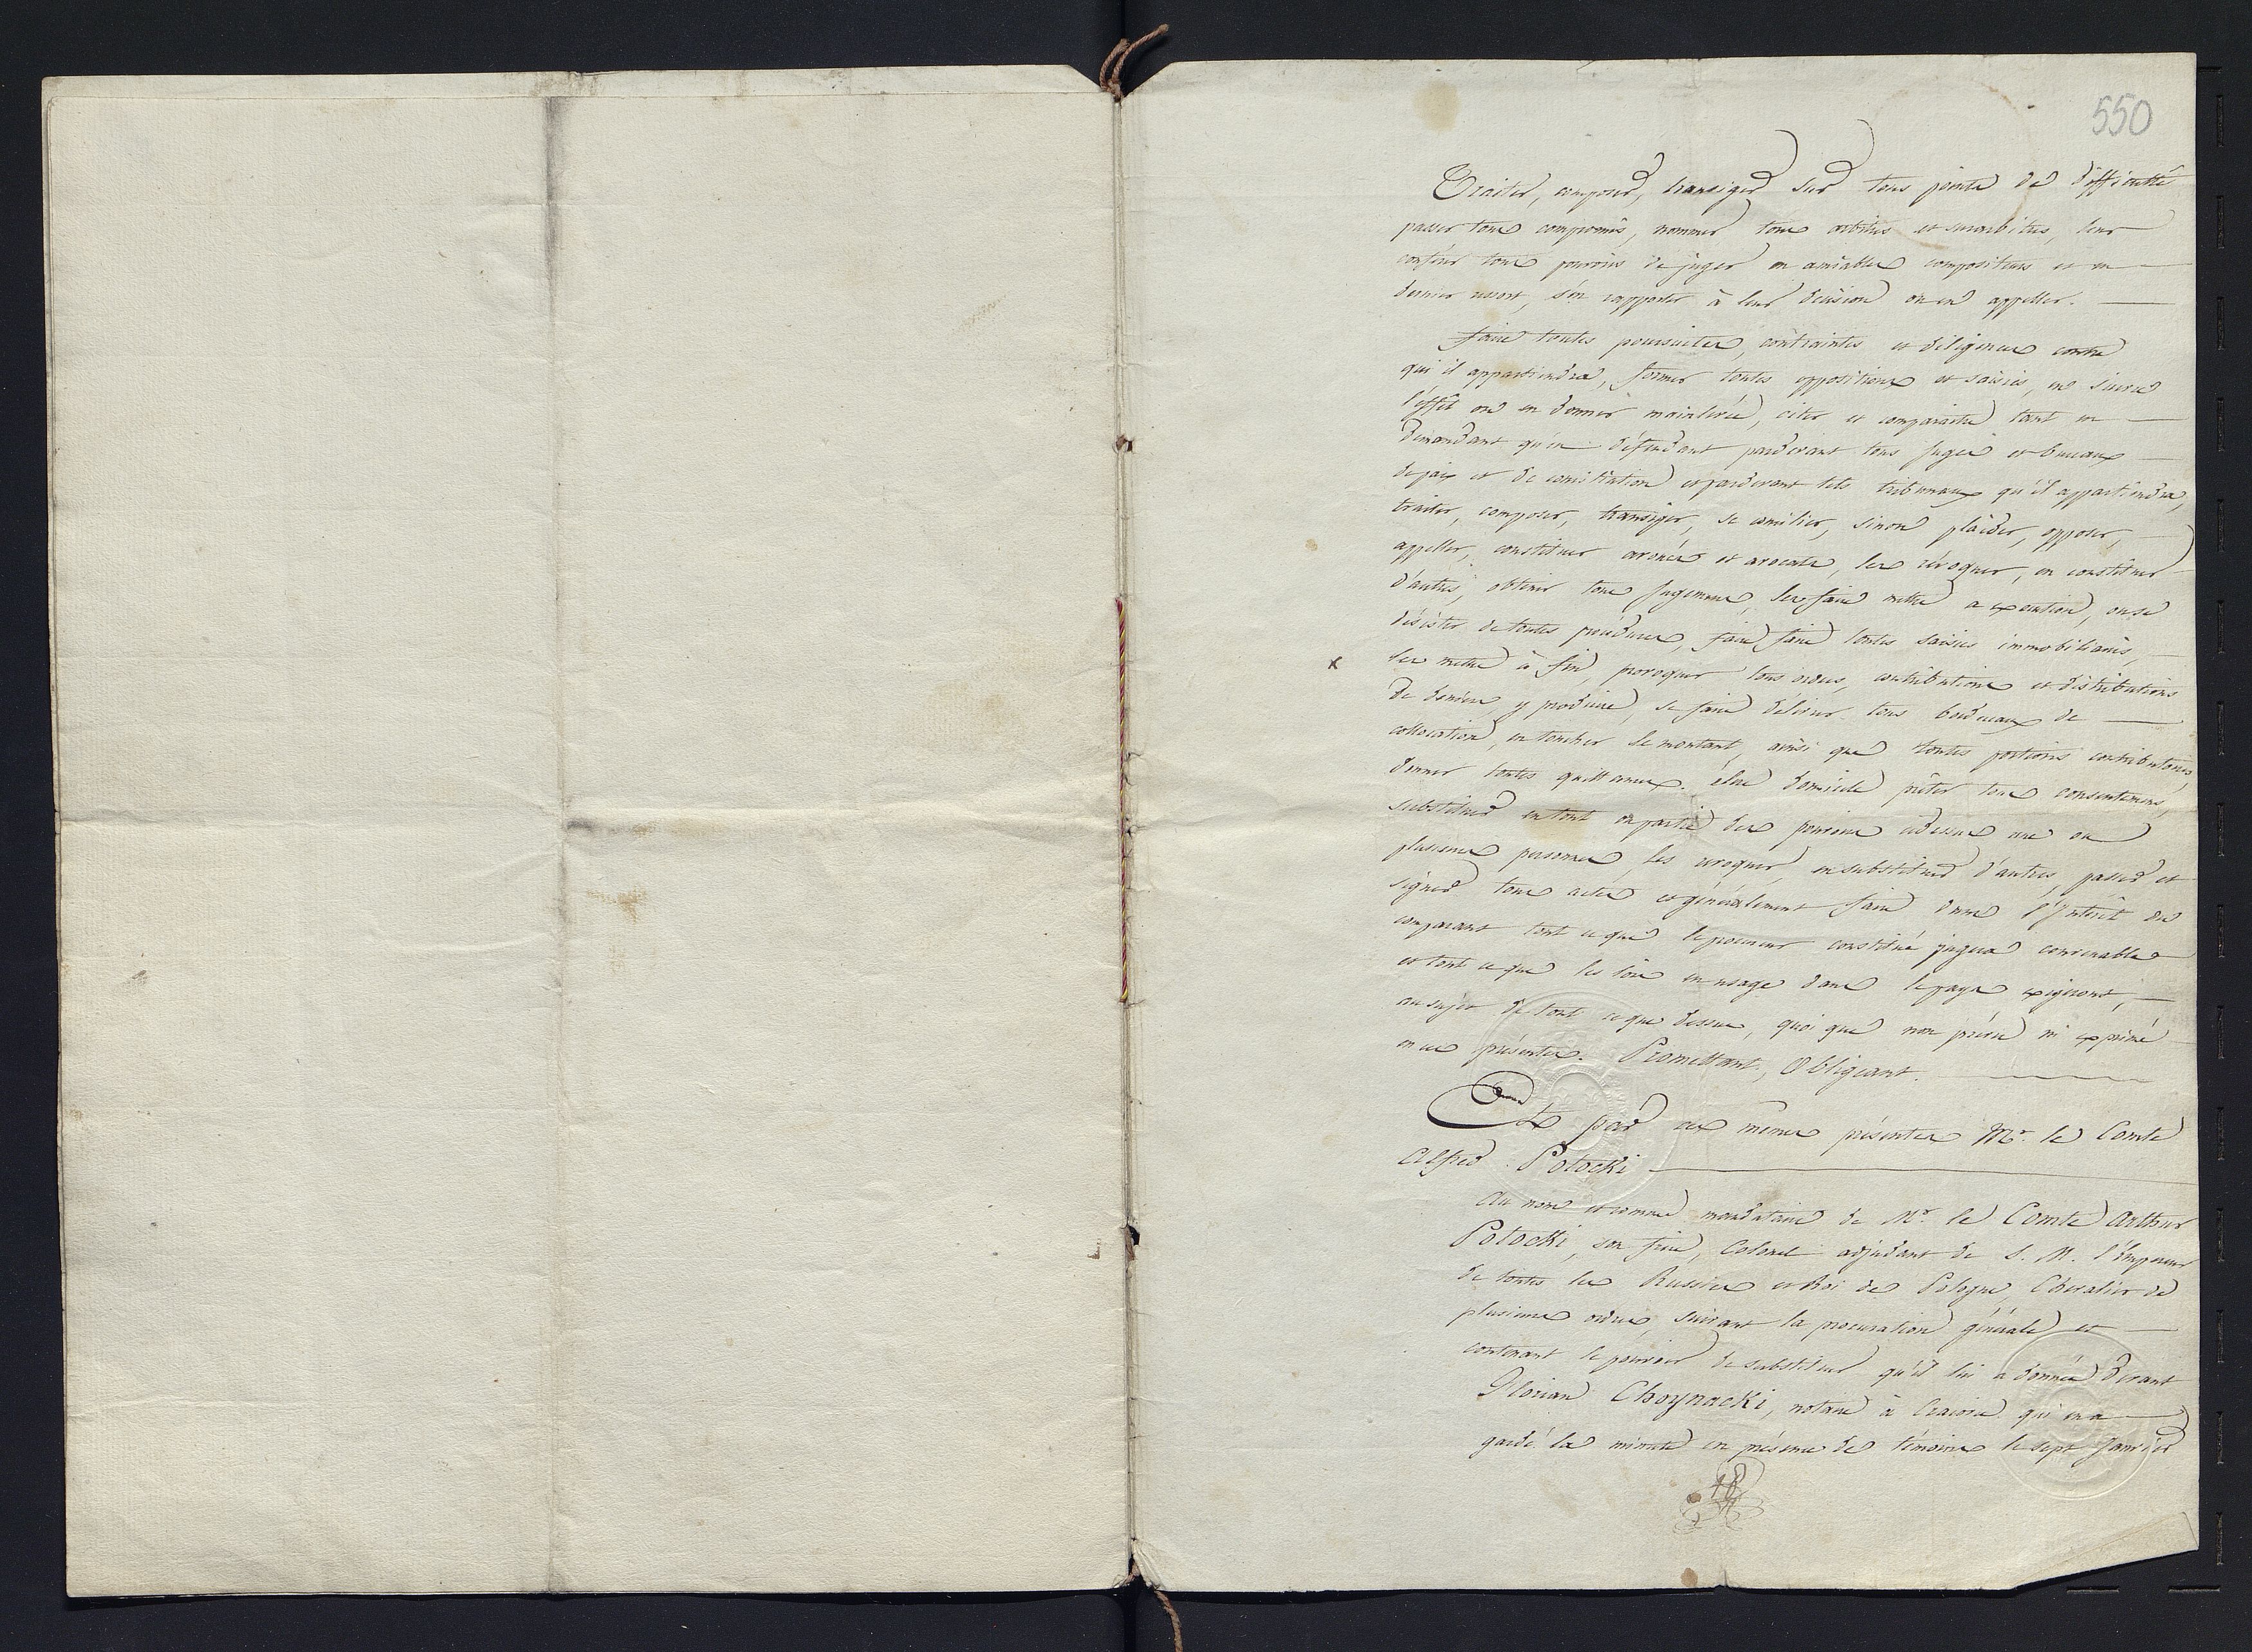 550
Traiter, composer, transiger sur tous points de difficulté
passer tous compromis, nommer tous arbitres et surarbitres, leur
conférer tous pouvoirs de juger en amiables compositeurs et en
dernier ressort, s'en rapporter à leur décision ou en appeller.
faire toutes poursuites, contraintes et diligences contre
qui il appartiendra, former toutes oppositions et saisies, en suivre
l'effet ou en donner mainlevée, citer et comparaitre tant en
demandant qu'en défendant pardevant tous juges et bureaux
de paix et de conciliation et pardevant tels tribunaux qu'il appartiendra,
traiter, composer, transiger, se concilier, sinon plaider, opposer,
appeller, constituer avoués et avocats, les révoquer, en constituer
d'autres, obtenir tous jugemens, les faire mettre a exécution, ou se
désister de toutes procédures, faire faire toutes saisies immobiliaires,
x les mettre à fin, provoquer tous ordres, contributions et distributions
de deniers, y produire, se faire délivrer tous bordereaux de
collocation, en toucher le montant, ainsi que toutes portions contributoires,
donner toutes quittances. élire domicile prêter tous consentemens,
substituer en tout ou partie des pouvoirs cidessus une ou
plusieurs personnes, les revoquer, en substituer d'autres, passer et
signer tous actes et généralement faire dans l'Intérêt du
comparant tout ce que le procureur constitué jugera convenable
et tout ce que les lois en usage dans le pays exigeront,
au sujet de tout ce que dessus, quoi que non prévu ni exprimé
en ces présentes. Promettant, Obligeant.
Et par ces mêmes présentes Mr. le Comte
Alfred Potocki
Au nom et comme mandataire de Mr. le Comte Arthur
Potocki, son frère, Colonel adjudant de S. M. l'Empereur
de toutes les Russies et Roi de Pologne, Chevalier de
plusieurs ordres, suivant la procuration générale et
contenant le pouvoir de substituer qu'il lui a donnée devant
Florian Choynacki, notaire à Cracovie qui en a
gardé la minute en présence de témoins le sept Janvier